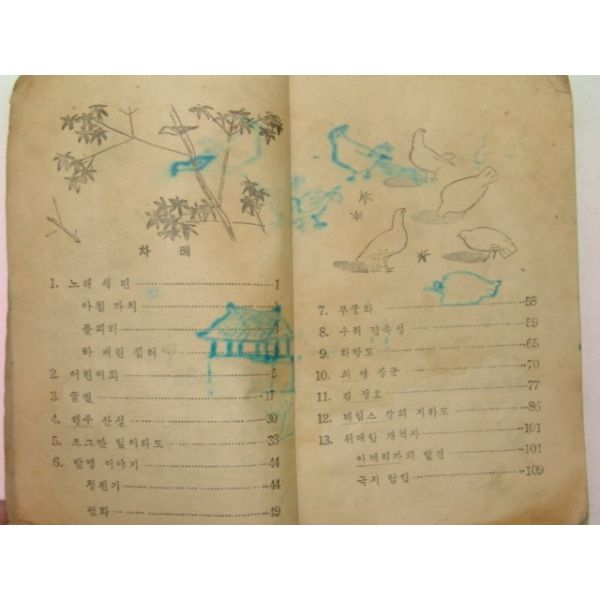 차 례
1. 노래 세 편 1
아침 까치 1
풀피리 3
타 버린 집터
2. 어린이회 5
3. 꿀벌 17
4. 행주 산성 30
5. 조그만 일이라도 33
6. 발명 이야기 44
청진기 44
전화 49
7. 무궁화 58
8. 우리 민족성 59
9. 화랑도 65
10. 최 영 장군 70
11. 김 정호 77
12. 테임스 강의 지하도 86
13. 위대한 개척자 101
아메리카의 발견 101
극지 탐험 109